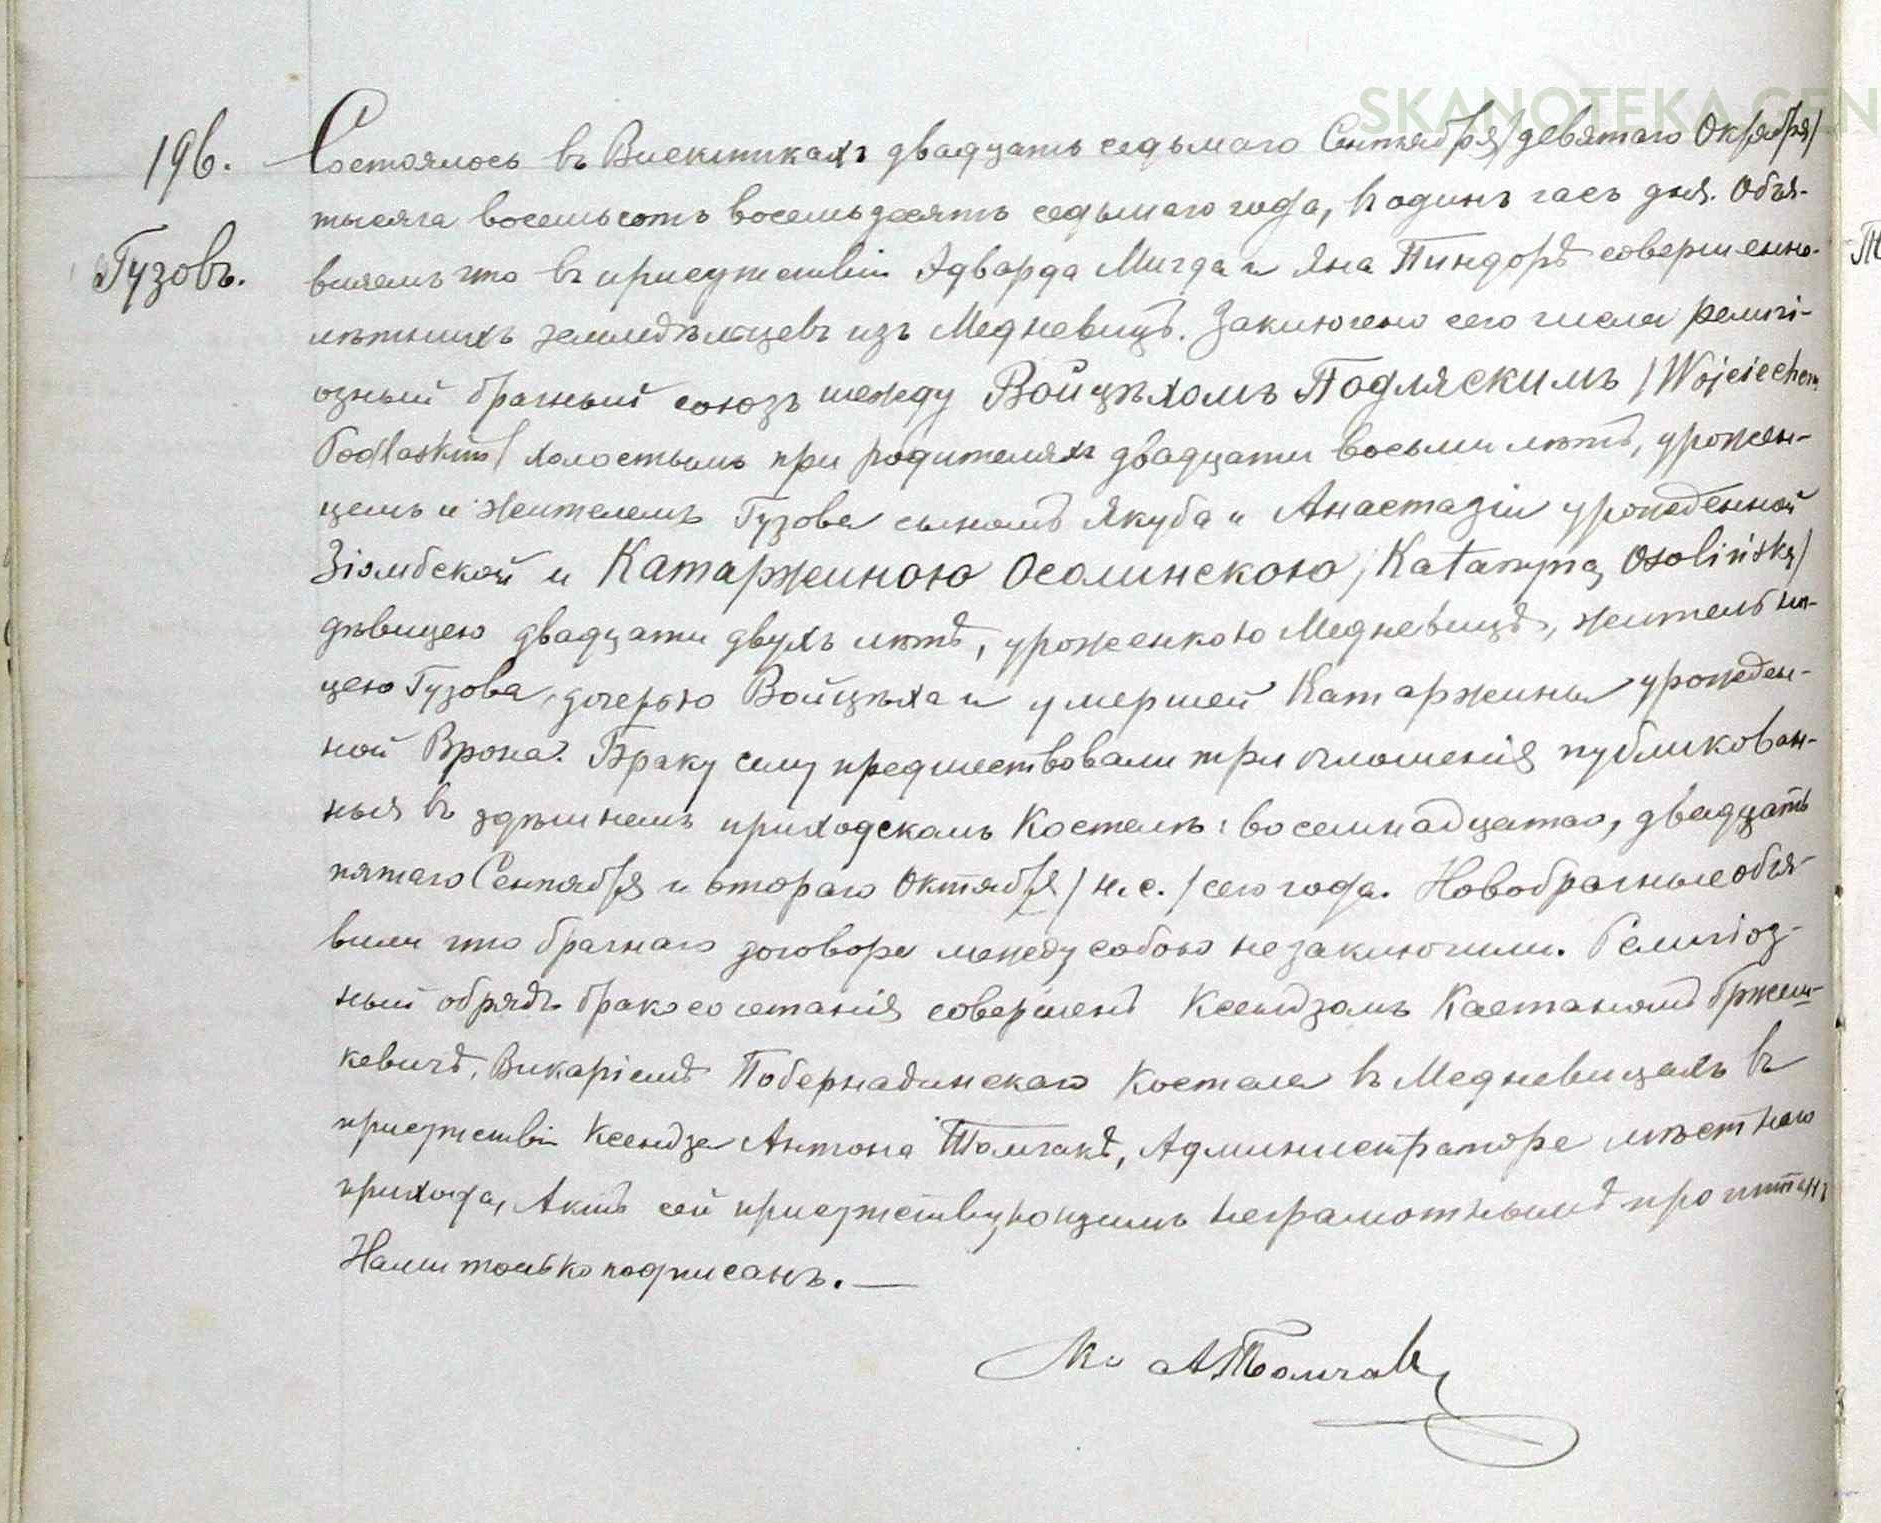 SKANOTEKA.GEN
196. Состоялось въ Вискиткахъ двадцать седьмаго Сентября/девятаго Октября/
тысяча восемьсотъ восемьдесятъ седьмаго года, въ одинъ часъ дня. Объя-
Гузовъ.
вляемъ что въ присутствіи Эдварда Мигда и Яна Пиндоръ совершенно-
лѣтнихъ земледѣльцевъ изъ Медневицъ. Заключено сего числа религі-
озный брачный союзъ между Войцѣхомъ Подляскимъ /Wojciechem
Podlaskim/ холостымъ при родителяхъ двадцати восьми лѣтъ, урожен-
цемъ и жителемъ Гузова сыномъ Якуба и Анастазіи урожденной
Зіомбской и Катаржиною Осолинскою /Katarzyną Osolińską/
дѣвицею двадцати двухъ лѣтъ, уроженкою Медневицъ, жительни-
цею Гузова, дочерью Войцѣха и умершей Катаржины урожден-
ной Врона. Браку сему предшествовали три оглашенія публикован-
ныя въ здѣшнемъ приходскомъ Костелѣ: восемнадцатаго, двадцать
пятаго Сентября и втораго Октября /н.с./ сего года. Новобрачные объя-
вили что брачнаго договора между собою не заключили. Религіоз-
ный обрядъ бракосочетанія совершенъ Ксендзомъ Каетаномъ Бржеш-
кевичъ, Викаріемъ Побернадинскаго Костела въ Медневицахъ въ
присутствіи Ксендза Антона Томчакъ, Администратора мѣстнаго
прихода, Актъ сей присутствующимъ неграмотнымъ прочитанъ
Нами только подписанъ. —